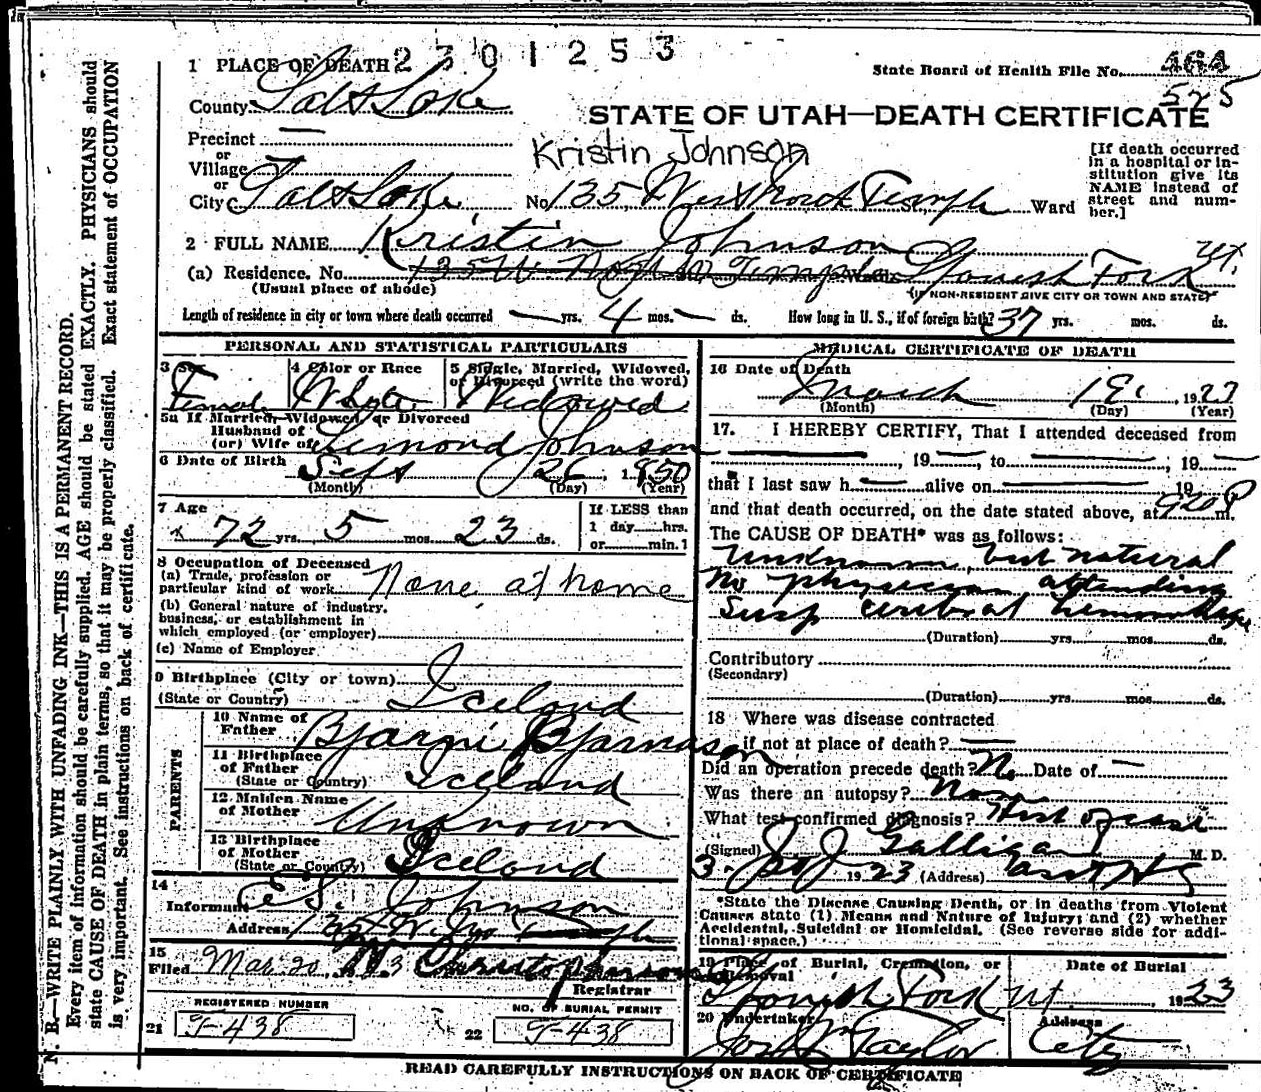 2301253
1 PLACE OF DEATH
State Board of Health File No. 464
525
County Salt Lake
STATE OF UTAH—DEATH CERTIFICATE
Precinct —
Kristin Johnson
or
Village
or
City Salt Lake No 135 West North Temple St. Ward
[If death occurred
in a hospital or in-
stitution give its
NAME instead of
street and num-
ber.]
2 FULL NAME Kristin Johnson
(a) Residence. No. 135 W North Temple Spanish Fork Ut.
(Usual place of abode)
(IF NON-RESIDENT GIVE CITY OR TOWN AND STATE)
Length of residence in city or town where death occurred — yrs. 4 mos. — ds. How long in U. S., if of foreign birth? 37 yrs. mos. ds.
PERSONAL AND STATISTICAL PARTICULARS
3 Sex
Femal
4 Color or Race
White
5 Single, Married, Widowed,
or Divorced (write the word)
Widowed
5a If Married, Widowed, or Divorced
Husband of
(or) Wife of Johnson
6 Date of Birth Sept 26, 1850
(Month) (Day) (Year)
7 Age
72 yrs. 5 mos. 23 ds.
If LESS than
1 day hrs.
or min.?
8 Occupation of Deceased
(a) Trade, profession or
particular kind of work None at home
(b) General nature of industry,
business, or establishment in
which employed (or employer)
(c) Name of Employer
9 Birthplace (City or town)
(State or Country) Iceland
PARENTS
10 Name of
Father Bjarni Bjarnason
11 Birthplace
of Father
(State or Country) Iceland
12 Maiden Name
of Mother Unknown
13 Birthplace
of Mother
(State or Country) Iceland
14
Informant E. S. Johnson
Address 135 W. No Temple
15
Filed Mar 20, Christopherson
Registrar
REGISTERED NUMBER
21 T-438
NO. OF BURIAL PERMIT
22 T-438
MEDICAL CERTIFICATE OF DEATH
16 Date of Death
March 19, 1923
(Month) (Day) (Year)
17. I HEREBY CERTIFY, That I attended deceased from
—, 19 —, to —, 19 —
that I last saw h — alive on — 19
and that death occurred, on the date stated above, at 920 P m.
The CAUSE OF DEATH* was as follows:
Unknown, but natural
No physician attending
Susp cerebral hemorrhage
(Duration) yrs. mos. ds.
Contributory
(Secondary)
(Duration) yrs. mos. ds.
18 Where was disease contracted
if not at place of death? —
Did an operation precede death? No Date of —
Was there an autopsy? None
What test confirmed diagnosis? Hist of case
(Signed) Galligan M. D.
3- 1923 (Address)
*State the Disease Causing Death, or in deaths from Violent
Causes state (1) Means and Nature of Injury; and (2) whether
Accidental, Suicidal or Homicidal. (See reverse side for addi-
tional space.)
19 Place of Burial, Cremation, or
Removal
Spanish Fork Ut.
Date of Burial
1923
20 Undertaker
Jos Wm Taylor
Address
City
READ CAREFULLY INSTRUCTIONS ON BACK OF CERTIFICATE
N. B.—WRITE PLAINLY WITH UNFADING INK—THIS IS A PERMANENT RECORD.
Every item of information should be carefully supplied. AGE should be stated EXACTLY. PHYSICIANS should
state CAUSE OF DEATH in plain terms, so that it may be properly classified. Exact statement of OCCUPATION
is very important. See instructions on back of certificate.